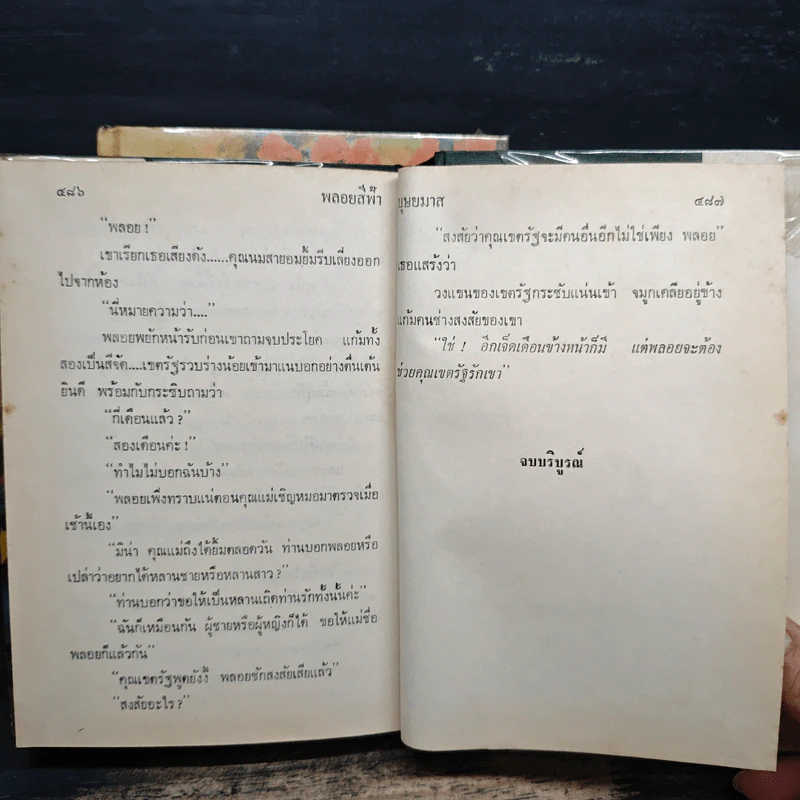 ๔๘๖
พลอยสีฟ้า
"พลอย !"
เขาเรียกเธอเสียงดัง......คุณนมสายอมยิ้มรีบเลี่ยงออก
ไปจากห้อง
"นี่หมายความว่า...."
พลอยพยักหน้ารับก่อนเขาถามจบประโยค แก้มทั้ง
สองเป็นสีจัด....เขตรัฐรวบร่างน้อยเข้ามาแนบอกอย่างตื่นเต้น
ยินดี พร้อมกับกระซิบถามว่า
"กี่เดือนแล้ว ?"
"สองเดือนค่ะ !"
"ทำไมไม่บอกฉันบ้าง"
"พลอยเพิ่งทราบแน่ตอนคุณแม่เชิญหมอมาตรวจเมื่อ
เช้านี้เอง"
"มิน่า คุณแม่ถึงได้ยิ้มตลอดวัน ท่านบอกพลอยหรือ
เปล่าว่าอยากได้หลานชายหรือหลานสาว ?"
"ท่านบอกว่าขอให้เป็นหลานเถิดท่านรักทั้งนั้นค่ะ"
"ฉันก็เหมือนกัน ผู้ชายหรือผู้หญิงก็ได้ ขอให้แม่ชื่อ
พลอยก็แล้วกัน"
"คุณเขตรัฐพูดยังงี้ พลอยชักสงสัยเสียแล้ว"
"สงสัยอะไร ?"
บุษยมาส
๔๘๗
"สงสัยว่าคุณเขตรัฐจะมีคนอื่นอีกไม่ใช่เพียง พลอย"
เธอแสร้งว่า
วงแขนของเขตรัฐกระชับแน่นเข้า จมูกเคลียอยู่ข้าง
แก้มคนช่างสงสัยของเขา
"ใช่ ! อีกเจ็ดเดือนข้างหน้าก็มี แต่พลอยจะต้อง
ช่วยคุณเขตรัฐรักเขา"
จบบริบูรณ์